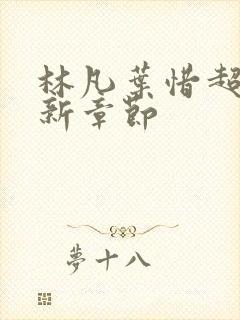 林凡葉惜超
新章節
夢十八